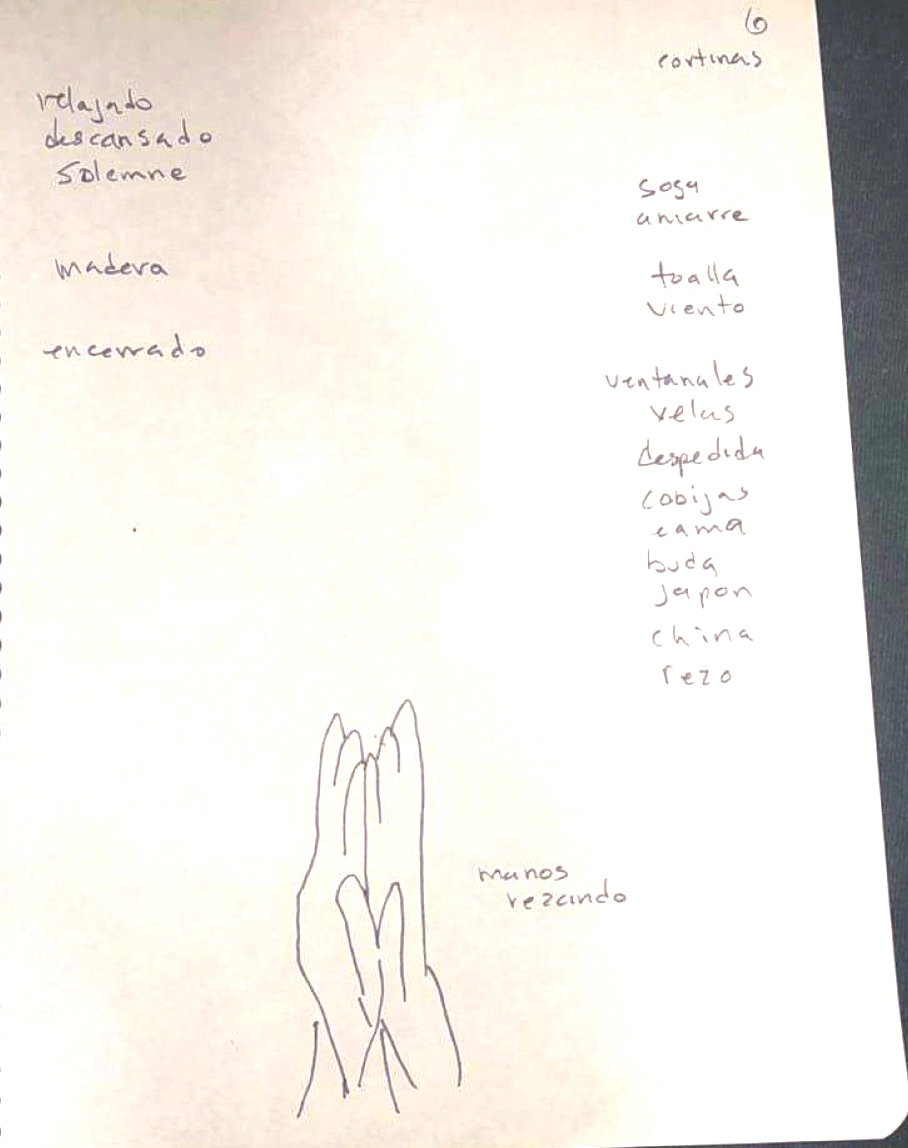 6
cortinas
relajado
descansado
solemne
soga
amarre
madera
toalla
viento
encerrado
ventanales
velas
despedida
cobijas
cama
buda
japon
china
rezo
manos
rezando